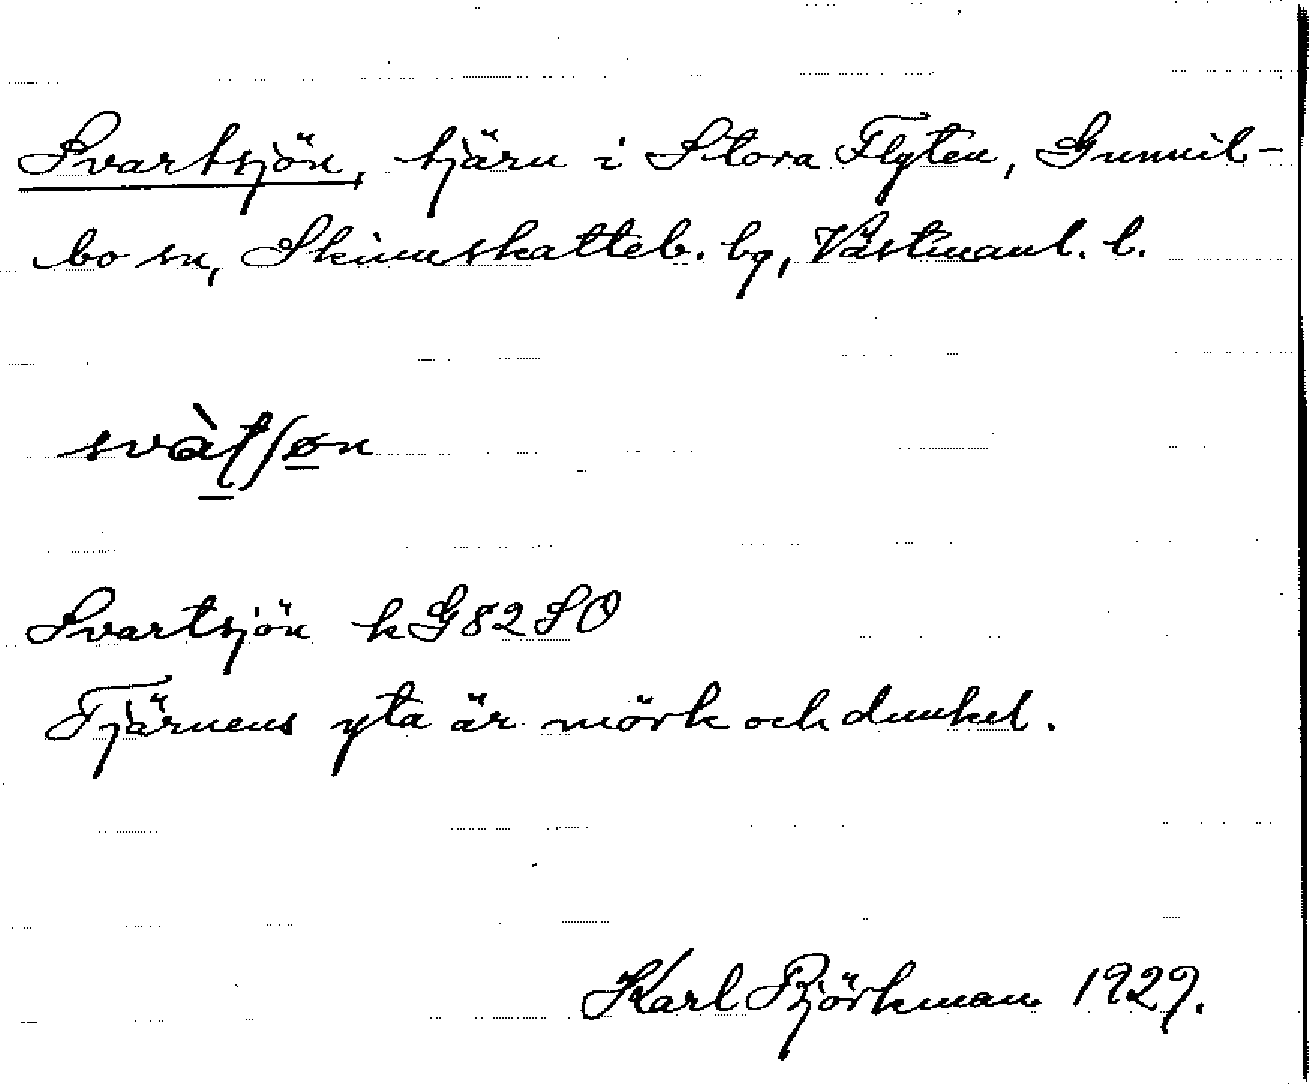 Svartsjön, tjärn i Stora Flyten, Gunnil-
bo sn, Skinnskatteb. bg, Västmanl. l.
svàʈʃøn
Svartsjön k G82 SO
Tjärnens yta är mörk och dunkel.
Karl Björkman 1929.